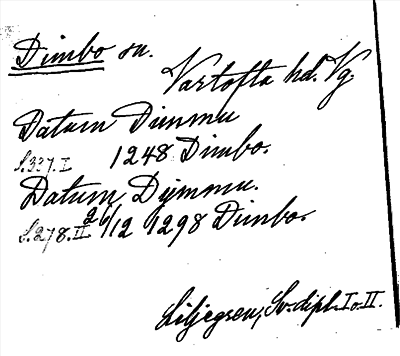 Dimbo sn.
Vartofta hd. Vg.
Datum Dimmu
S.337.I 1248 Dimbo.
Datum Dymmu.
S.278.II 26/12 1298 Dimbo.
Liljegren, Sv. dipl. I o. II.